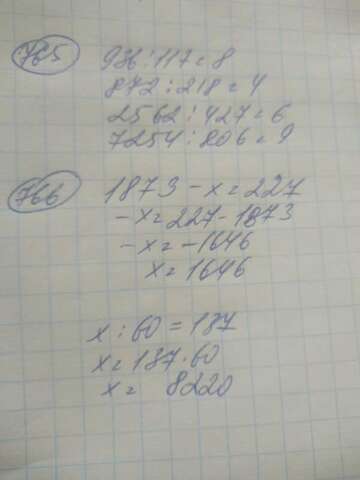 765
936:117=8
872:218=4
2562:427=6
7254:806=9
766
1873-x=227
-x=227-1873
-x=-1646
x=1646
x:60=137
x=137·60
x= 8220